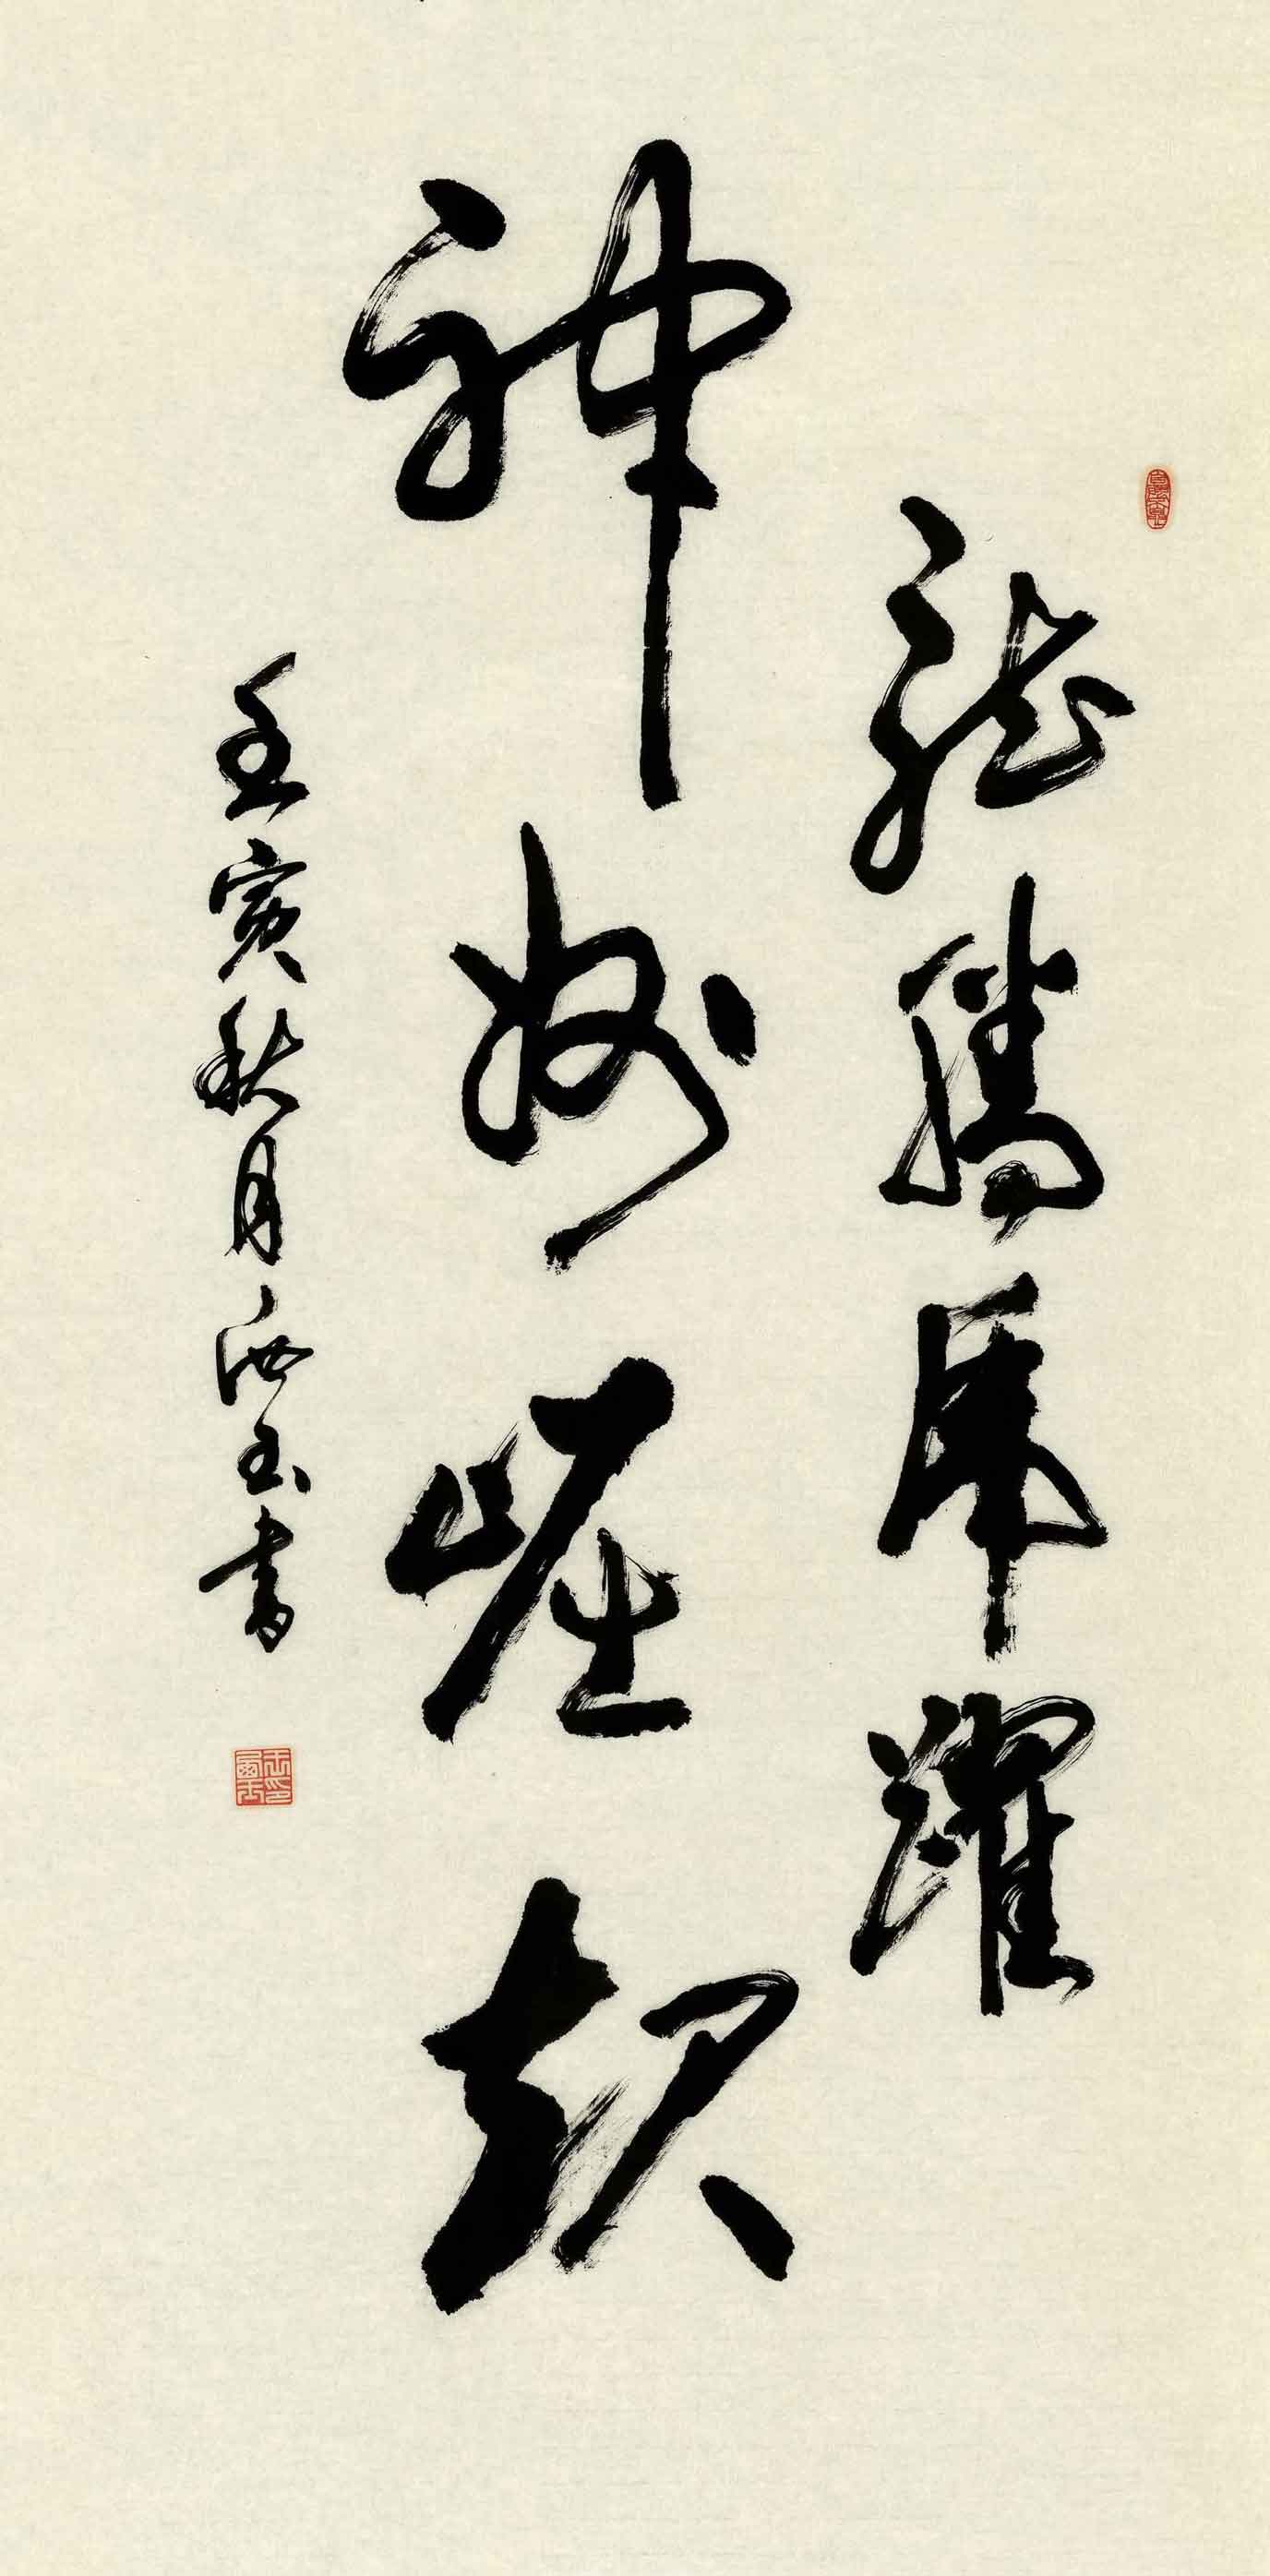 龍騰虎躍
神州崛起
壬寅秋月汝玉書